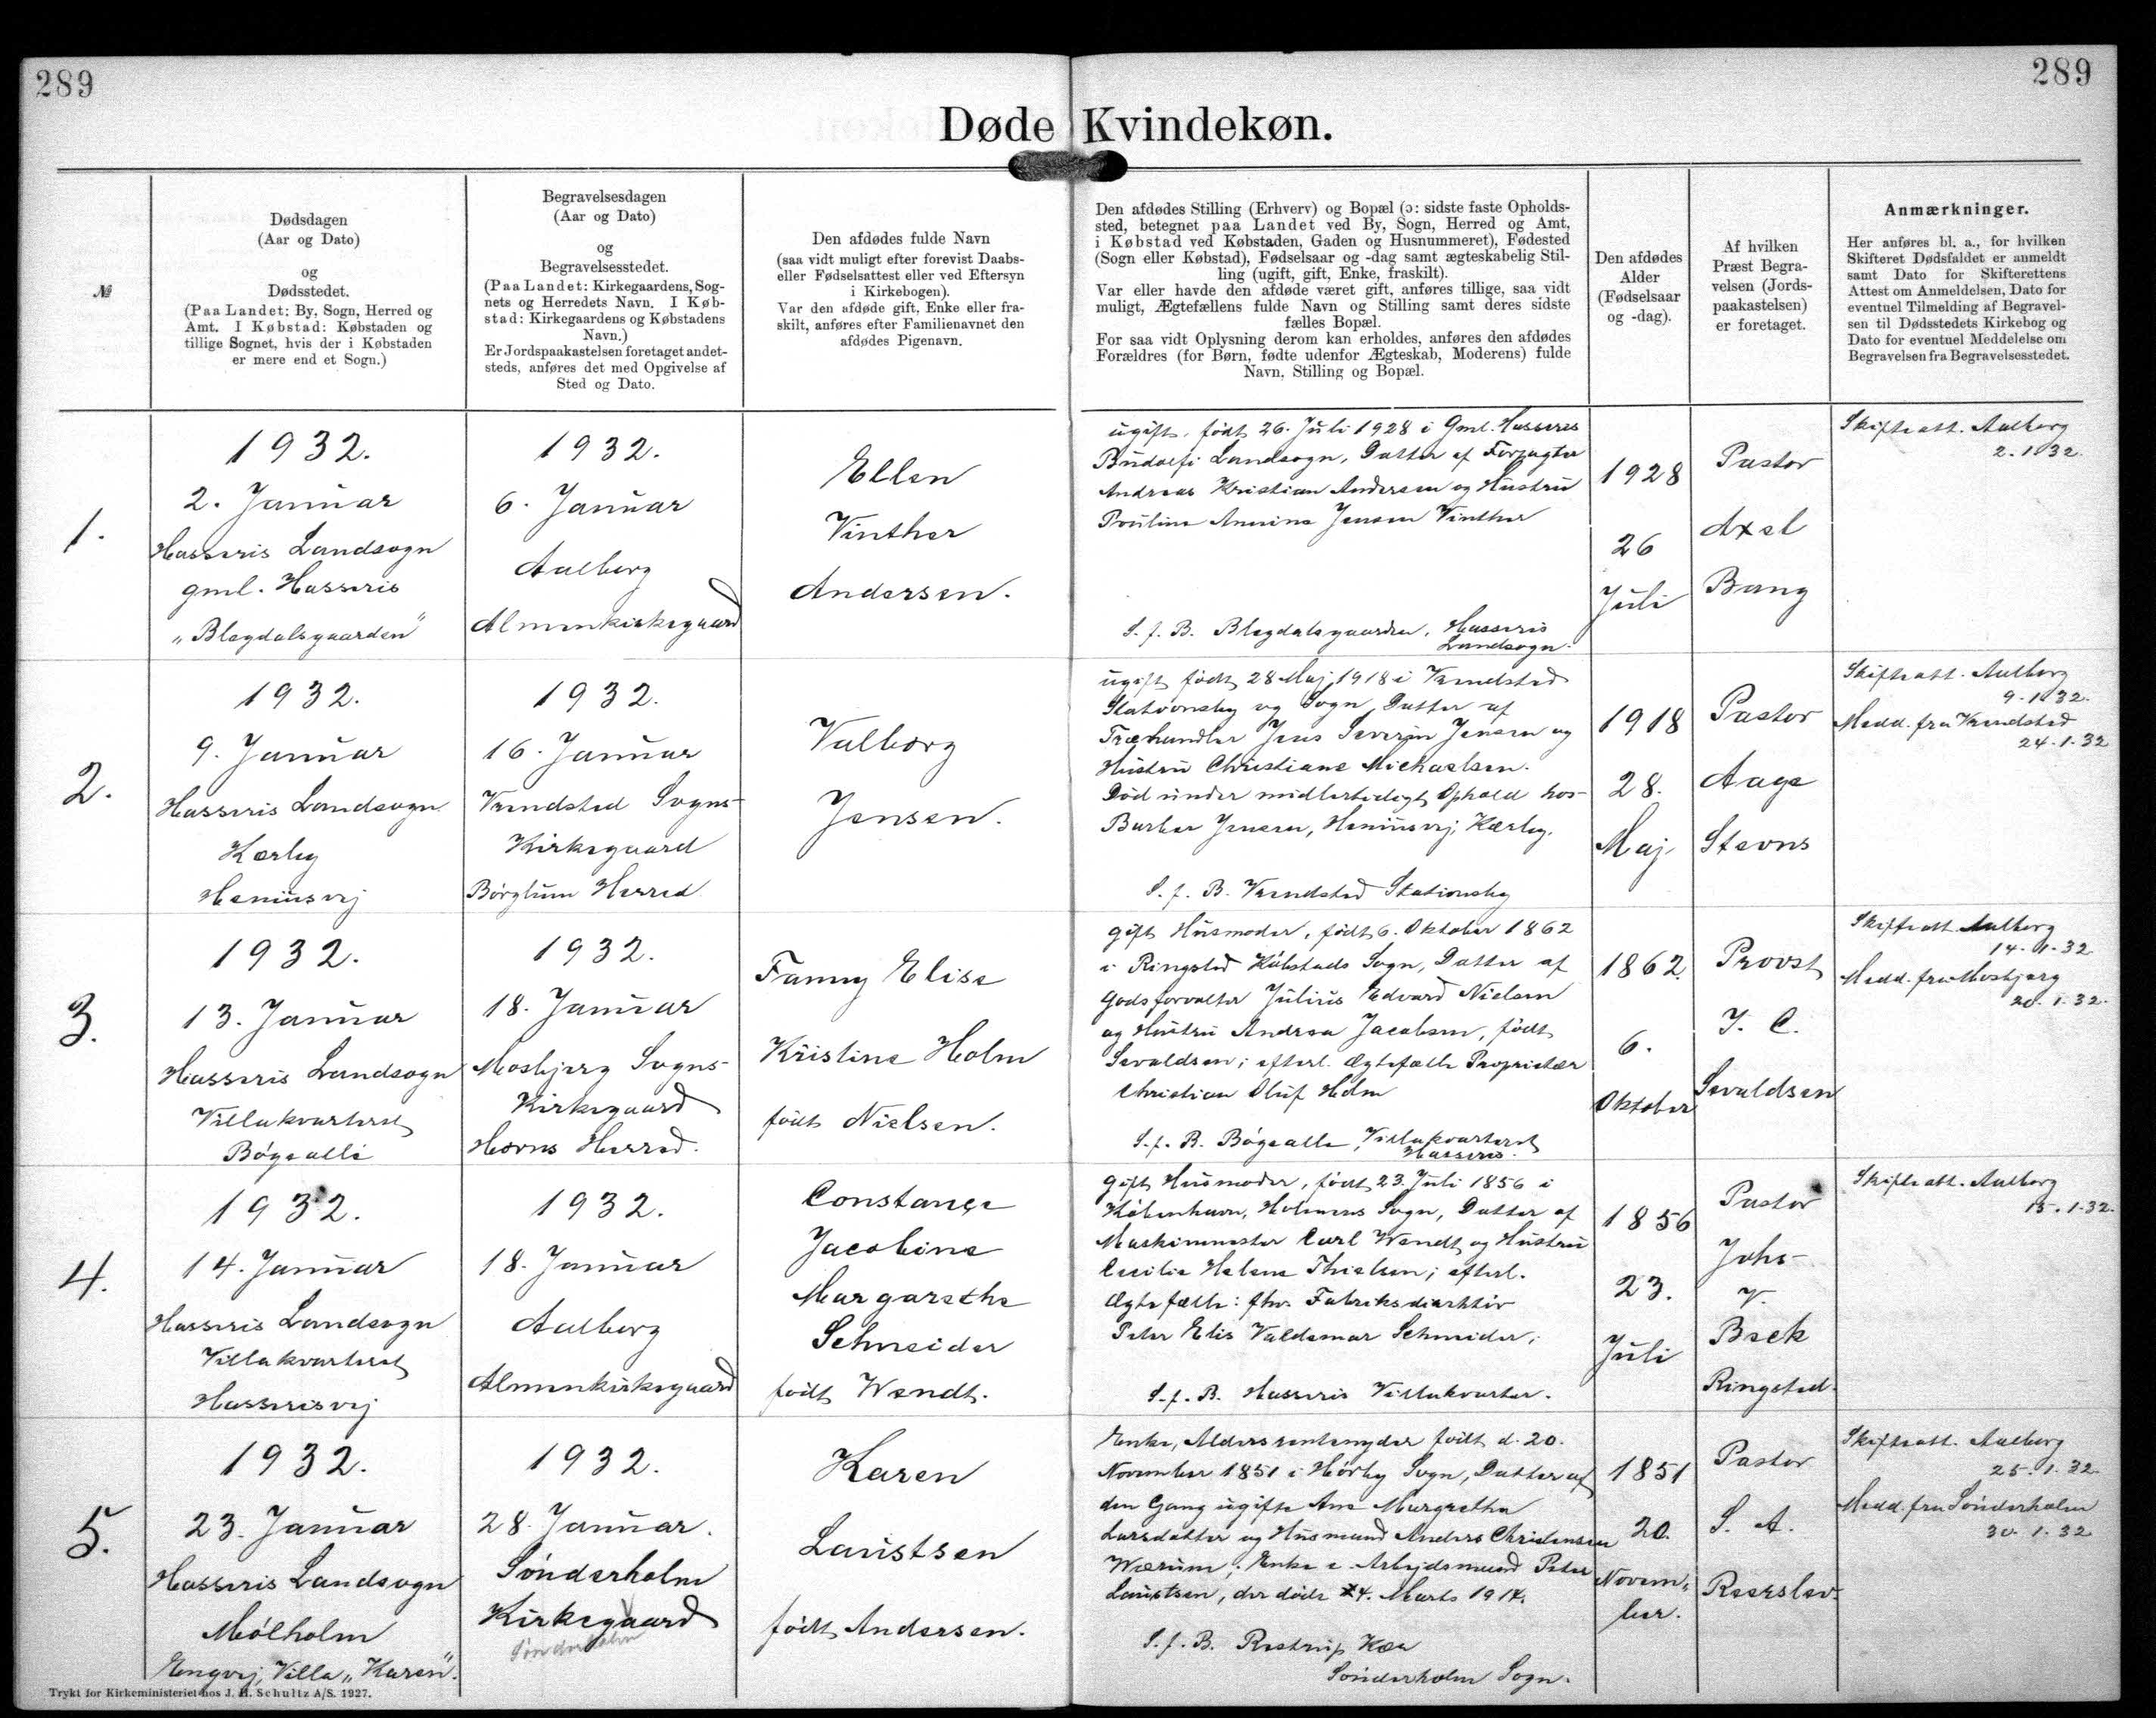 289
289
Døde Kvindekøn.
№
Dødsdagen
(Aar og Dato)
og
Dødsstedet.
(Paa Landet: By, Sogn, Herred og
Amt. I Købstad: Købstaden og
tillige Sognet, hvis der i Købstaden
er mere end et Sogn.)
Begravelsesdagen
(Aar og Dato)
og
Begravelsesstedet.
(Paa Landet: Kirkegaardens, Sog-
nets og Herredets Navn. I Køb-
stad: Kirkegaardens og Købstadens
Navn.)
Er Jordspaakastelsen foretaget andet-
steds, anføres det med Opgivelse af
Sted og Dato.
Den afdødes fulde Navn
(saa vidt muligt efter forevist Daabs-
eller Fødselsattest eller ved Eftersyn
i Kirkebogen).
Var den afdøde gift, Enke eller fra-
skilt, anføres efter Familienavnet den
afdødes Pigenavn.
Den afdødes Stilling (Erhverv) og Bopæl (ɔ: sidste faste Opholds-
sted, betegnet paa Landet ved By, Sogn, Herred og Amt,
i Købstad ved Købstaden, Gaden og Husnummeret), Fødested
(Sogn eller Købstad), Fødselsaar og -dag samt ægteskabelig Stil-
ling (ugift, gift, Enke, fraskilt).
Var eller havde den afdøde været gift, anføres tillige, saa vidt
muligt, Ægtefællens fulde Navn og Stilling samt deres sidste
fælles Bopæl.
For saa vidt Oplysning derom kan erholdes, anføres den afdødes
Forældres (for Børn, fødte udenfor Ægteskab, Moderens) fulde
Navn, Stilling og Bopæl.
Den afdødes
Alder
(Fødselsaar
og -dag).
Af hvilken
Præst Begra-
velsen (Jords-
paakastelsen)
er foretaget.
Anmærkninger.
Her anføres bl. a., for hvilken
Skifteret Dødsfaldet er anmeldt
samt Dato for Skifterettens
Attest om Anmeldelsen, Dato for
eventuel Tilmelding af Begravel-
sen til Dødsstedets Kirkebog og
Dato for eventuel Meddelelse om
Begravelsen fra Begravelsesstedet.
1.
1932.
2. Januar
Hasseris Landsogn
gml. Hasseris
"Blegdalsgaarden"
1932.
6. Januar
Aalborg
Almenkirkegaard
Ellen
Vinther
Andersen.
ugift, født 26. Juli 1928 i Gml. Hasseris
Budolfi Landsogn, Datter af Forpagter
Andreas Kristian Andersen og Hustru
Pouline Annine Jensen Vinther
S. f. B. Blegdalsgaarden, Hasseris
Landsogn.
1928
26
Juli
Pastor
Axel
Bang
Skifteatt. Aalborg
2.1.32.
2.
1932.
9. Januar
Hasseris Landsogn
Kærby
Heniusvej
1932.
16. Januar
Vrendsted Sogns-
Kirkegaard
Børglum Herred
Valborg
Jensen.
ugift født 28 Maj 1918 i Vrendsted
Stationsby og Sogn, Datter af
Træhandler Jens Severin Jensen og
Hustru Christiane Michaelsen.
Død under midlertidigt Ophold hos
Barber Jensen, Heniusvej, Kærby.
S. f. B. Vrendsted Stationsby
1918
28.
Maj
Pastor
Aage
Stevns
Skifteatt. Aalborg
9.1.32.
Medd. fra Vrendsted
24.1.32
3.
1932.
13. Januar
Hasseris Landsogn
Villakvarteret
Bøgealle
1932.
18. Januar
Mosbjerg Sogns-
Kirkegaard
Horns Herred.
Fanny Elise
Kristine Holm
født Nielsen.
gift Husmoder, født 6. Oktober 1862
i Ringsted Købstads Sogn, Datter af
Godsforvalter Julius Edvard Nielsen
og Hustru Andrea Jacobsen, født
Sevaldsen; efterl. Ægtefælle Proprietær
Christian Oluf Holm
S. f. B. Bøgealle, Villakvarteret
Hasseris.
1862.
6.
Oktober
Provst
J. C.
Sevaldsen
Skifteatt Aalborg
14.1.32
Medd. fra Mosbjerg
20.1.32.
4.
1932.
14. Januar
Hasseris Landsogn
Villakvarteret
Hasserisvej
1932.
18. Januar
Aalborg
Almenkirkegaard
Constance
Jacobine
Margarethe
Schneider
født Wendt.
gift Husmoder, født 23. Juli 1856 i
København, Holmens Sogn, Datter af
Maskinmester Carl Wendt og Hustru
Cecilie Helene Thielsen; efterl.
Ægtefælle: fhv. Fabriksdirektør
Peter Elis Valdemar Schneider;
S. f. B. Hasseris Villakvarter.
1856
23.
Juli
Pastor
Johs
V.
Beck
Ringsted.
Skifteatt. Aalborg
15.1.32.
5.
1932.
23. Januar
Hasseris Landsogn
Mølholm
Engvej, Villa "Karen".
1932.
28. Januar.
Sønderholm
Kirkegaard
Sønderholm
Karen
Lauistsen
født Andersen.
Enke, Aldersrentenyder født d. 20.
November 1851 i Hørby Sogn, Datter af
den Gang ugifte Ane Margrethe
Larsdatter og Husmand Anders Christensen
Wærum; Enke e. Arbejdsmand Peter
Lauistsen, der døde 4. Marts 1914.
S. f. B. Restrup Kær
Sønderholm Sogn.
1851
20.
Novem-
ber.
Pastor
S. A.
Reerslev.
Skifteatt. Aalborg
25.1.32.
Medd. fra Sønderholm
30.1.32
Trykt for Kirkeministeriet hos J. H. Schultz A/S. 1927.